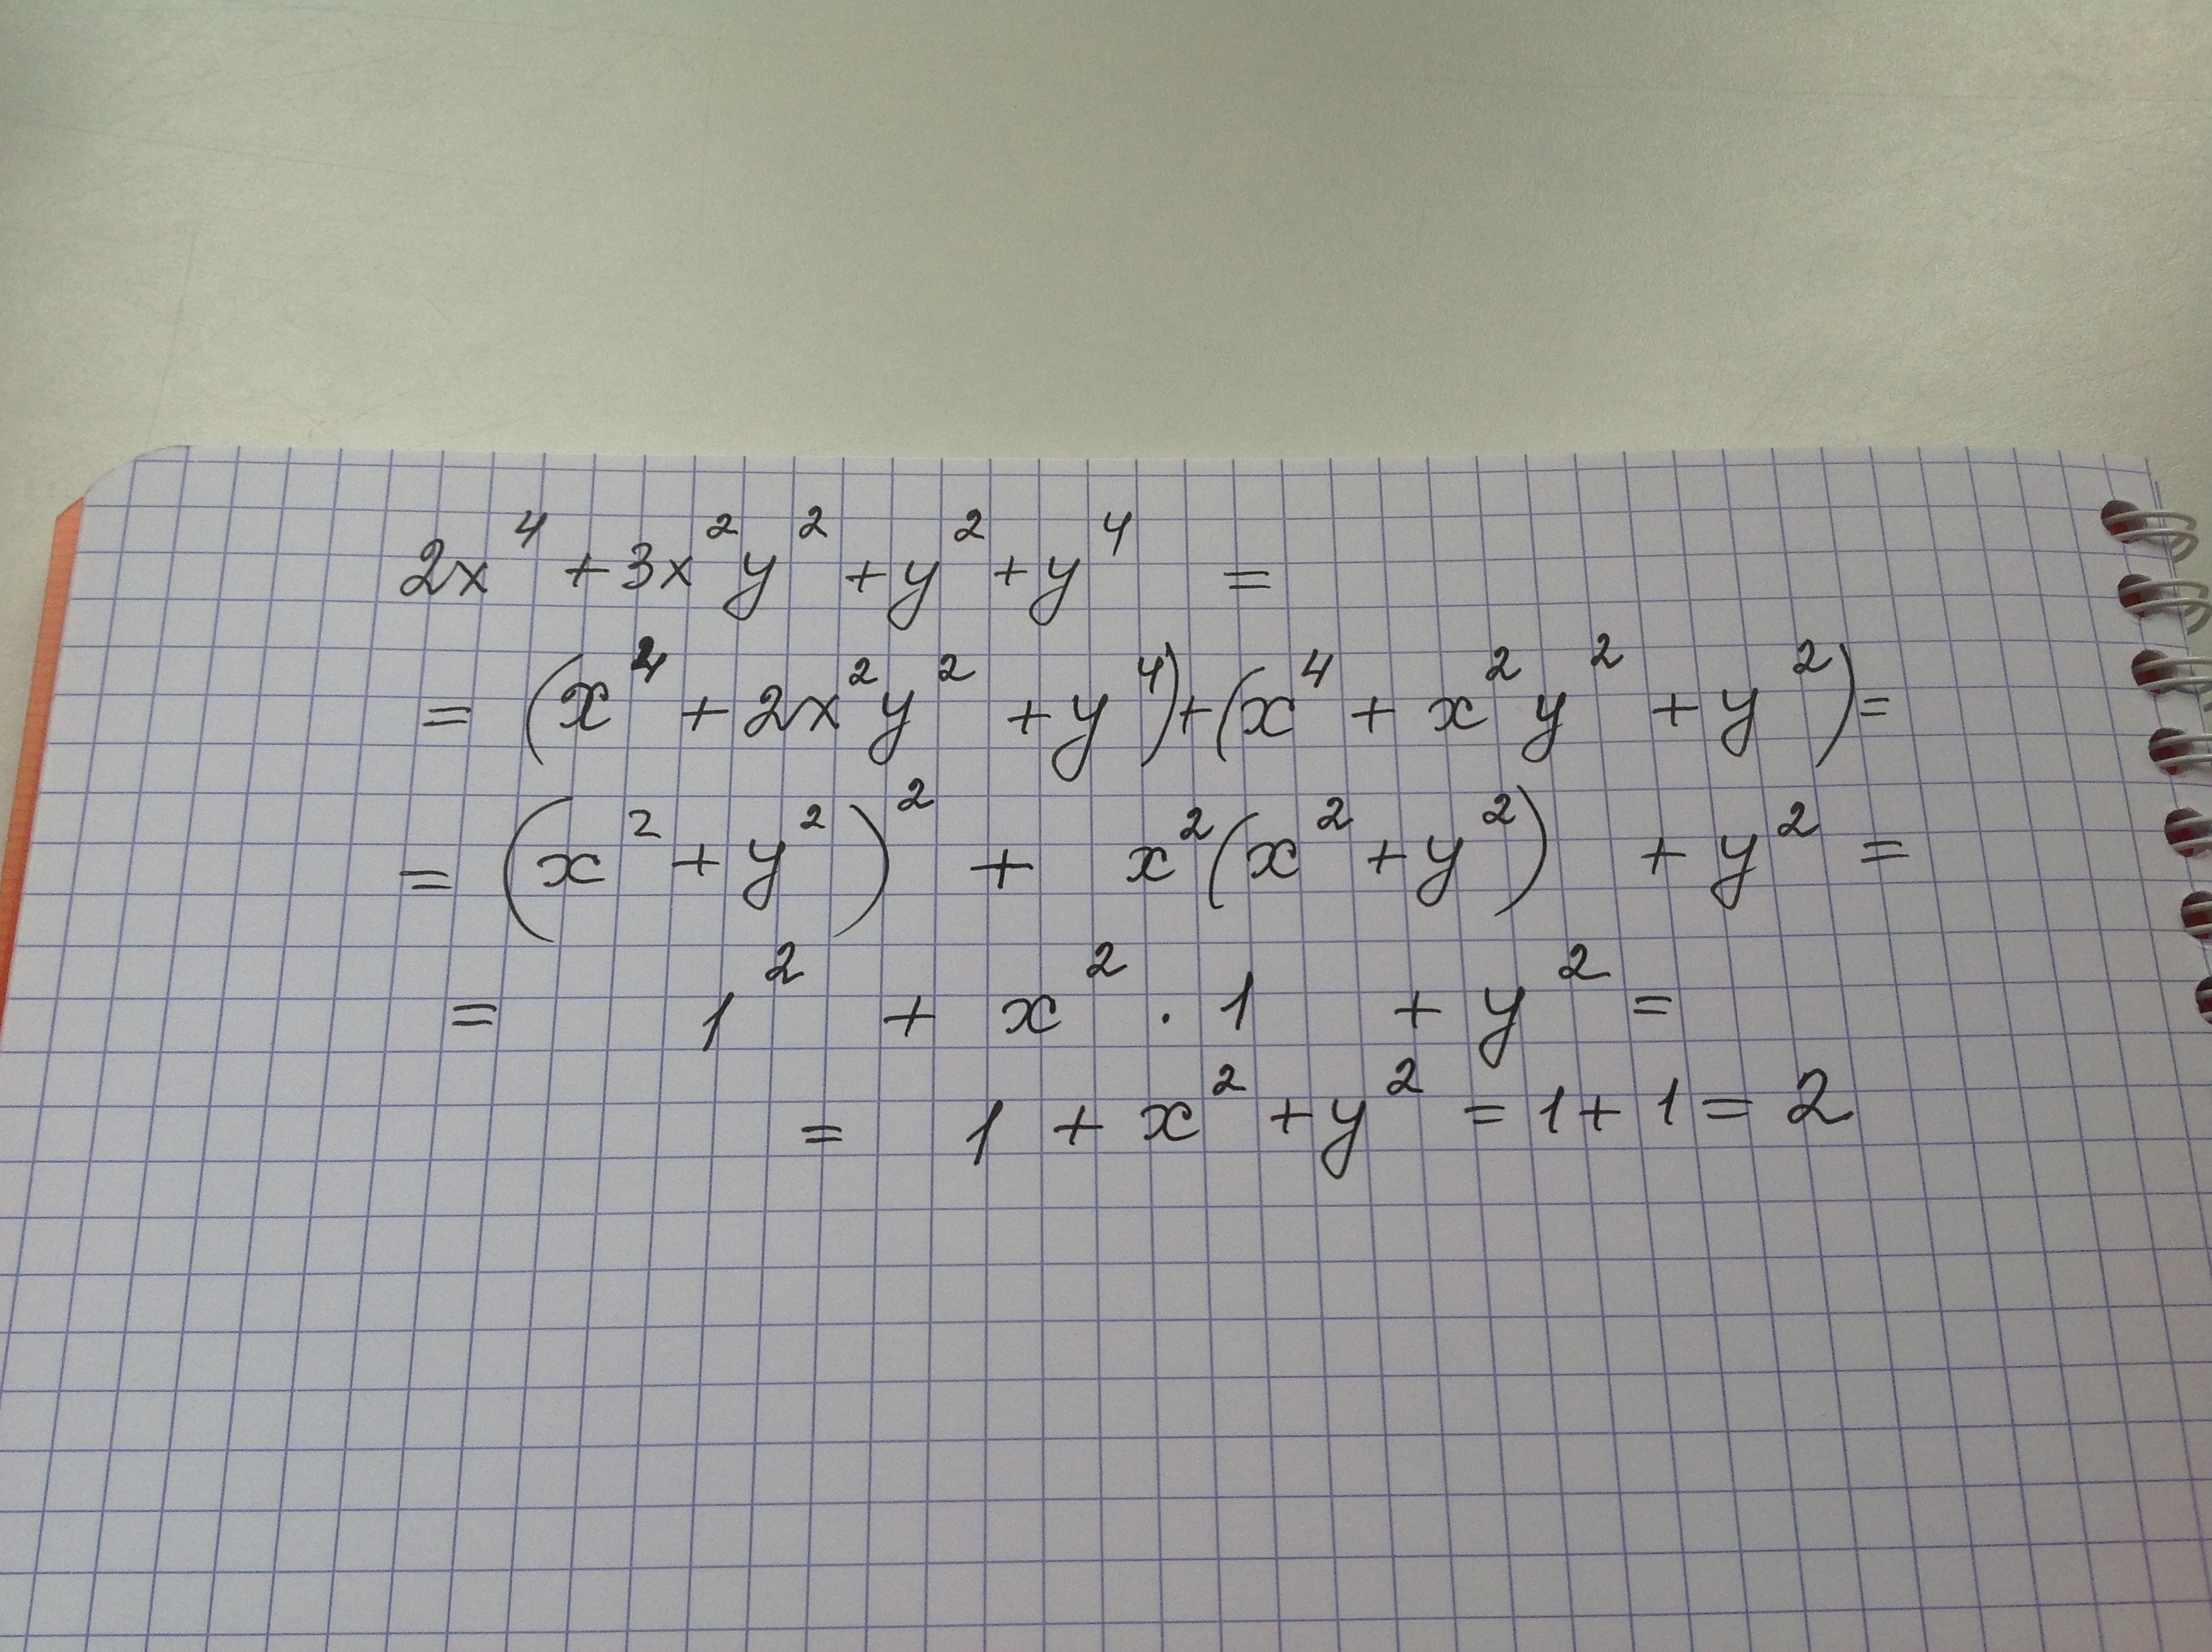 2x⁴ + 3x²y² + y² + y⁴ =
= (x⁴ + 2x²y² + y⁴) + (x⁴ + x²y² + y²) =
= (x² + y²)² + x²(x² + y²) + y² =
= 1² + x² · 1 + y² =
= 1 + x² + y² = 1 + 1 = 2